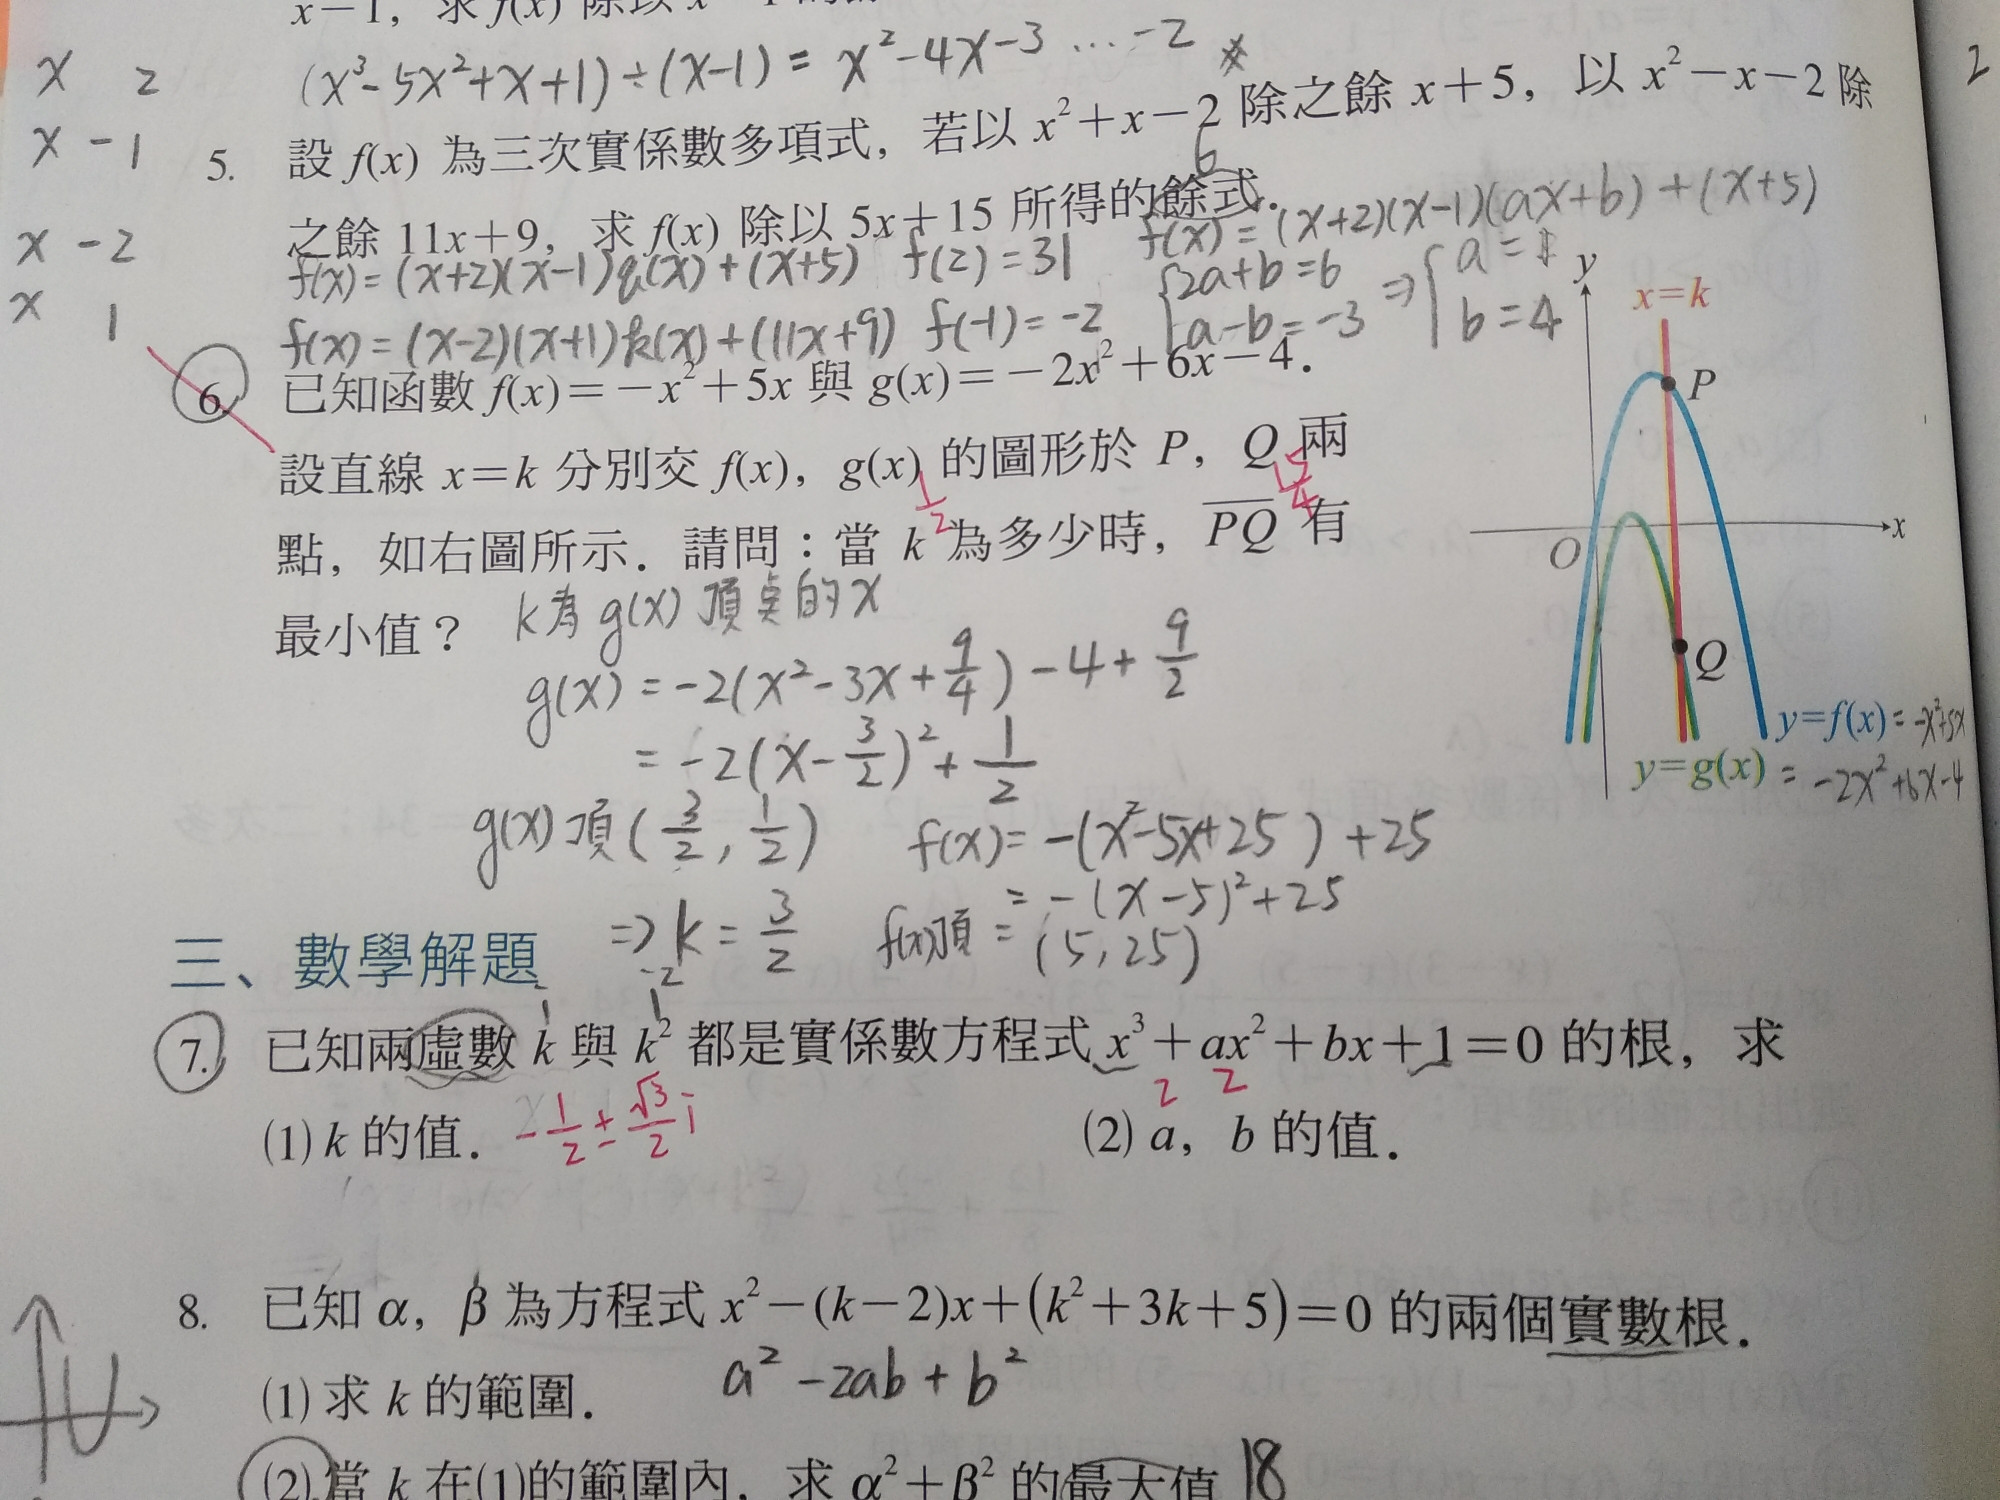 x−1，求 f(x) 除以
(x³-5x²+x+1)÷(x-1) = x²-4x-3 … -2
x 2
x -1
x -2
x 1
2
5. 設 f(x) 為三次實係數多項式，若以 x²+x−2 除之餘 x+5，以 x²−x−2 除
6
之餘 11x+9，求 f(x) 除以 5x+15 所得的餘式．
f(x) = (x+2)(x-1)(ax+b) + (x+5)
f(x) = (x+2)(x-1)q(x) + (x+5) f(2) = 31
{2a+b=6 a-b=-3 ⇒ {a=1 b=4
f(x) = (x-2)(x+1)k(x) + (11x+9) f(-1) = -2
6. 已知函數 f(x)=−x²+5x 與 g(x)=−2x²+6x−4．
設直線 x=k 分別交 f(x)，g(x) 的圖形於 P，Q 兩
1/2 15/4
點，如右圖所示．請問：當 k 為多少時，PQ 有
最小值？
k為g(x)頂點的x
g(x) = -2(x²-3x+9/4) -4+9/2
= -2(x-3/2)²+1/2
g(x)頂(3/2, 1/2)
⇒ k = 3/2
f(x) = -(x²-5x+25) + 25
= -(x-5)²+25
f(x)頂 = (5, 25)
y
x=k
P
x
O
Q
y=f(x) = -x²+5x
y=g(x) = -2x²+6x-4
三、數學解題
7. 已知兩虛數 k 與 k² 都是實係數方程式 x³+ax²+bx+1=0 的根，求
2 2
(1) k 的值． -1/2 ± √3/2 i
(2) a，b 的值．
8. 已知 α，β 為方程式 x²−(k−2)x+(k²+3k+5)=0 的兩個實數根．
(1) 求 k 的範圍．
a²-2ab+b²
(2) 當 k 在(1)的範圍內，求 α²+β² 的最大值 18